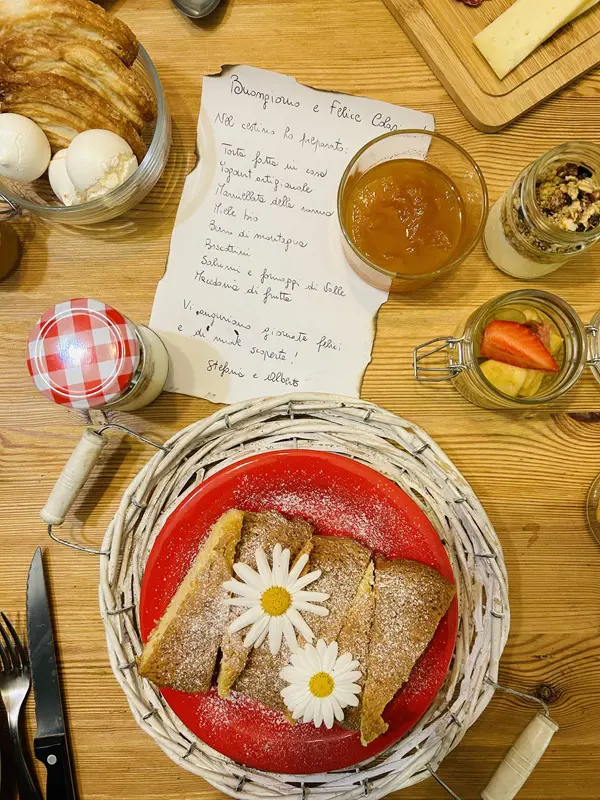 Buongiorno e Felice Colaz
Nel cestino ho preparato:
Torta fatta in casa
Yogurt artigianale
Marmellata della nonna
Miele bio
Burro di montagna
Biscottini
Salumi e formaggi di Valle
Macedonia di frutta
Vi auguriamo giornate felici
e di nuove scoperte!
Stefania e Alberto